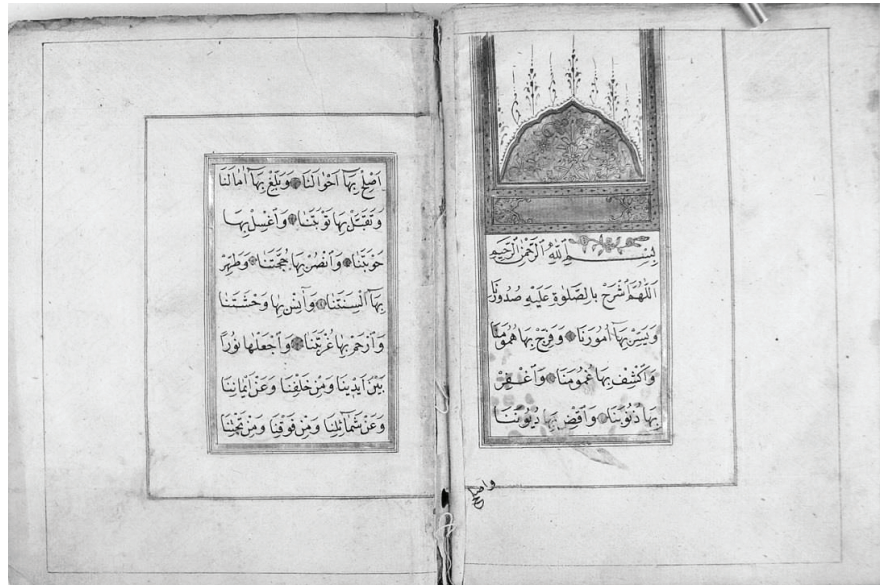 بِسْمِ اللّٰهِ الرَّحْمٰنِ الرَّحِيمِ
اَللّٰهُمَّ اشْرَحْ بِالصَّلٰوةِ عَلَيْهِ صُدُورَنَا
وَيَسِّرْ بِهَا اُمُورَنَا وَفَرِّجْ بِهَا هُمُومَنَا
وَاكْشِفْ بِهَا غُمُومَنَا وَاغْفِرْ
بِهَا ذُنُوبَنَا وَاقْضِ بِهَا دُيُونَنَا
واصلح
اَصْلِحْ بِهَا اَحْوَالَنَا وَبَلِّغْ بِهَا اٰمَالَنَا
وَتَقَبَّلْ بِهَا تَوْبَتَنَا وَاغْسِلْ بِهَا
حَوْبَتَنَا وَانْصُرْ بِهَا حُجَّتَنَا وَطَهِّرْ
بِهَا اَلْسِنَتَنَا وَاٰنِسْ بِهَا وَحْشَتَنَا
وَارْحَمْ بِهَا غُرْبَتَنَا وَاجْعَلْهَا نُورًا
بَيْنَ اَيْدِينَا وَمِنْ خَلْفِنَا وَعَنْ اَيْمَانِنَا
وَعَنْ شَمَائِلِنَا وَمِنْ فَوْقِنَا وَمِنْ تَحْتِنَا